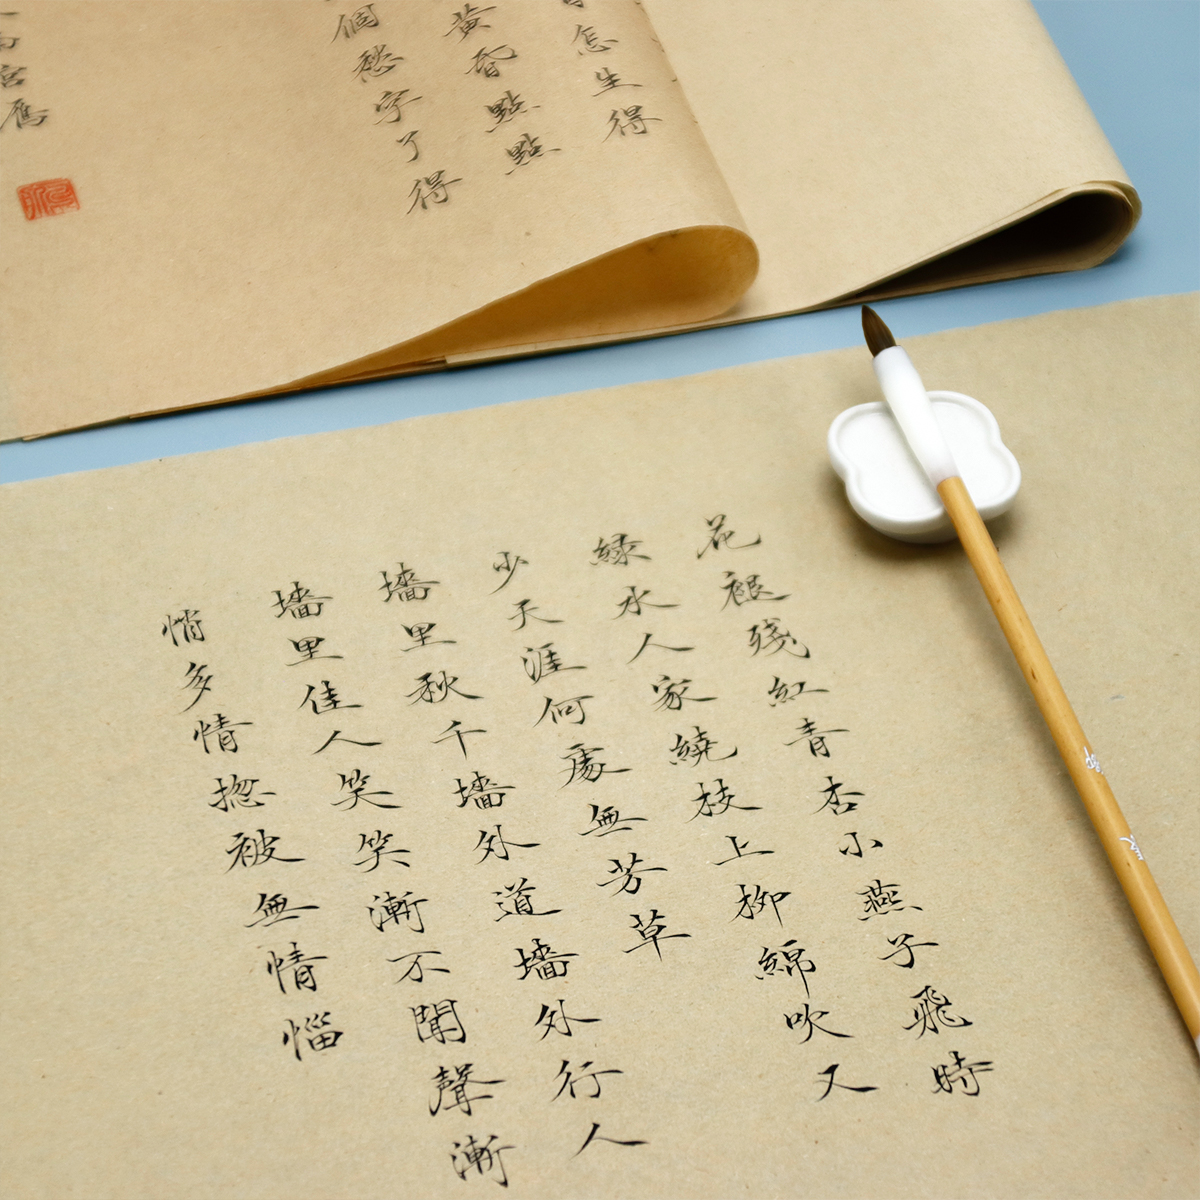 怎生得
黃昏點點
個愁字了得
花褪殘紅青杏小燕子飛時
緑水人家繞枝上柳綿吹又
少天涯何處無芳草
墻里秋千墻外道墻外行人
墻里佳人笑笑漸不聞聲漸
悄多情揔被無情惱